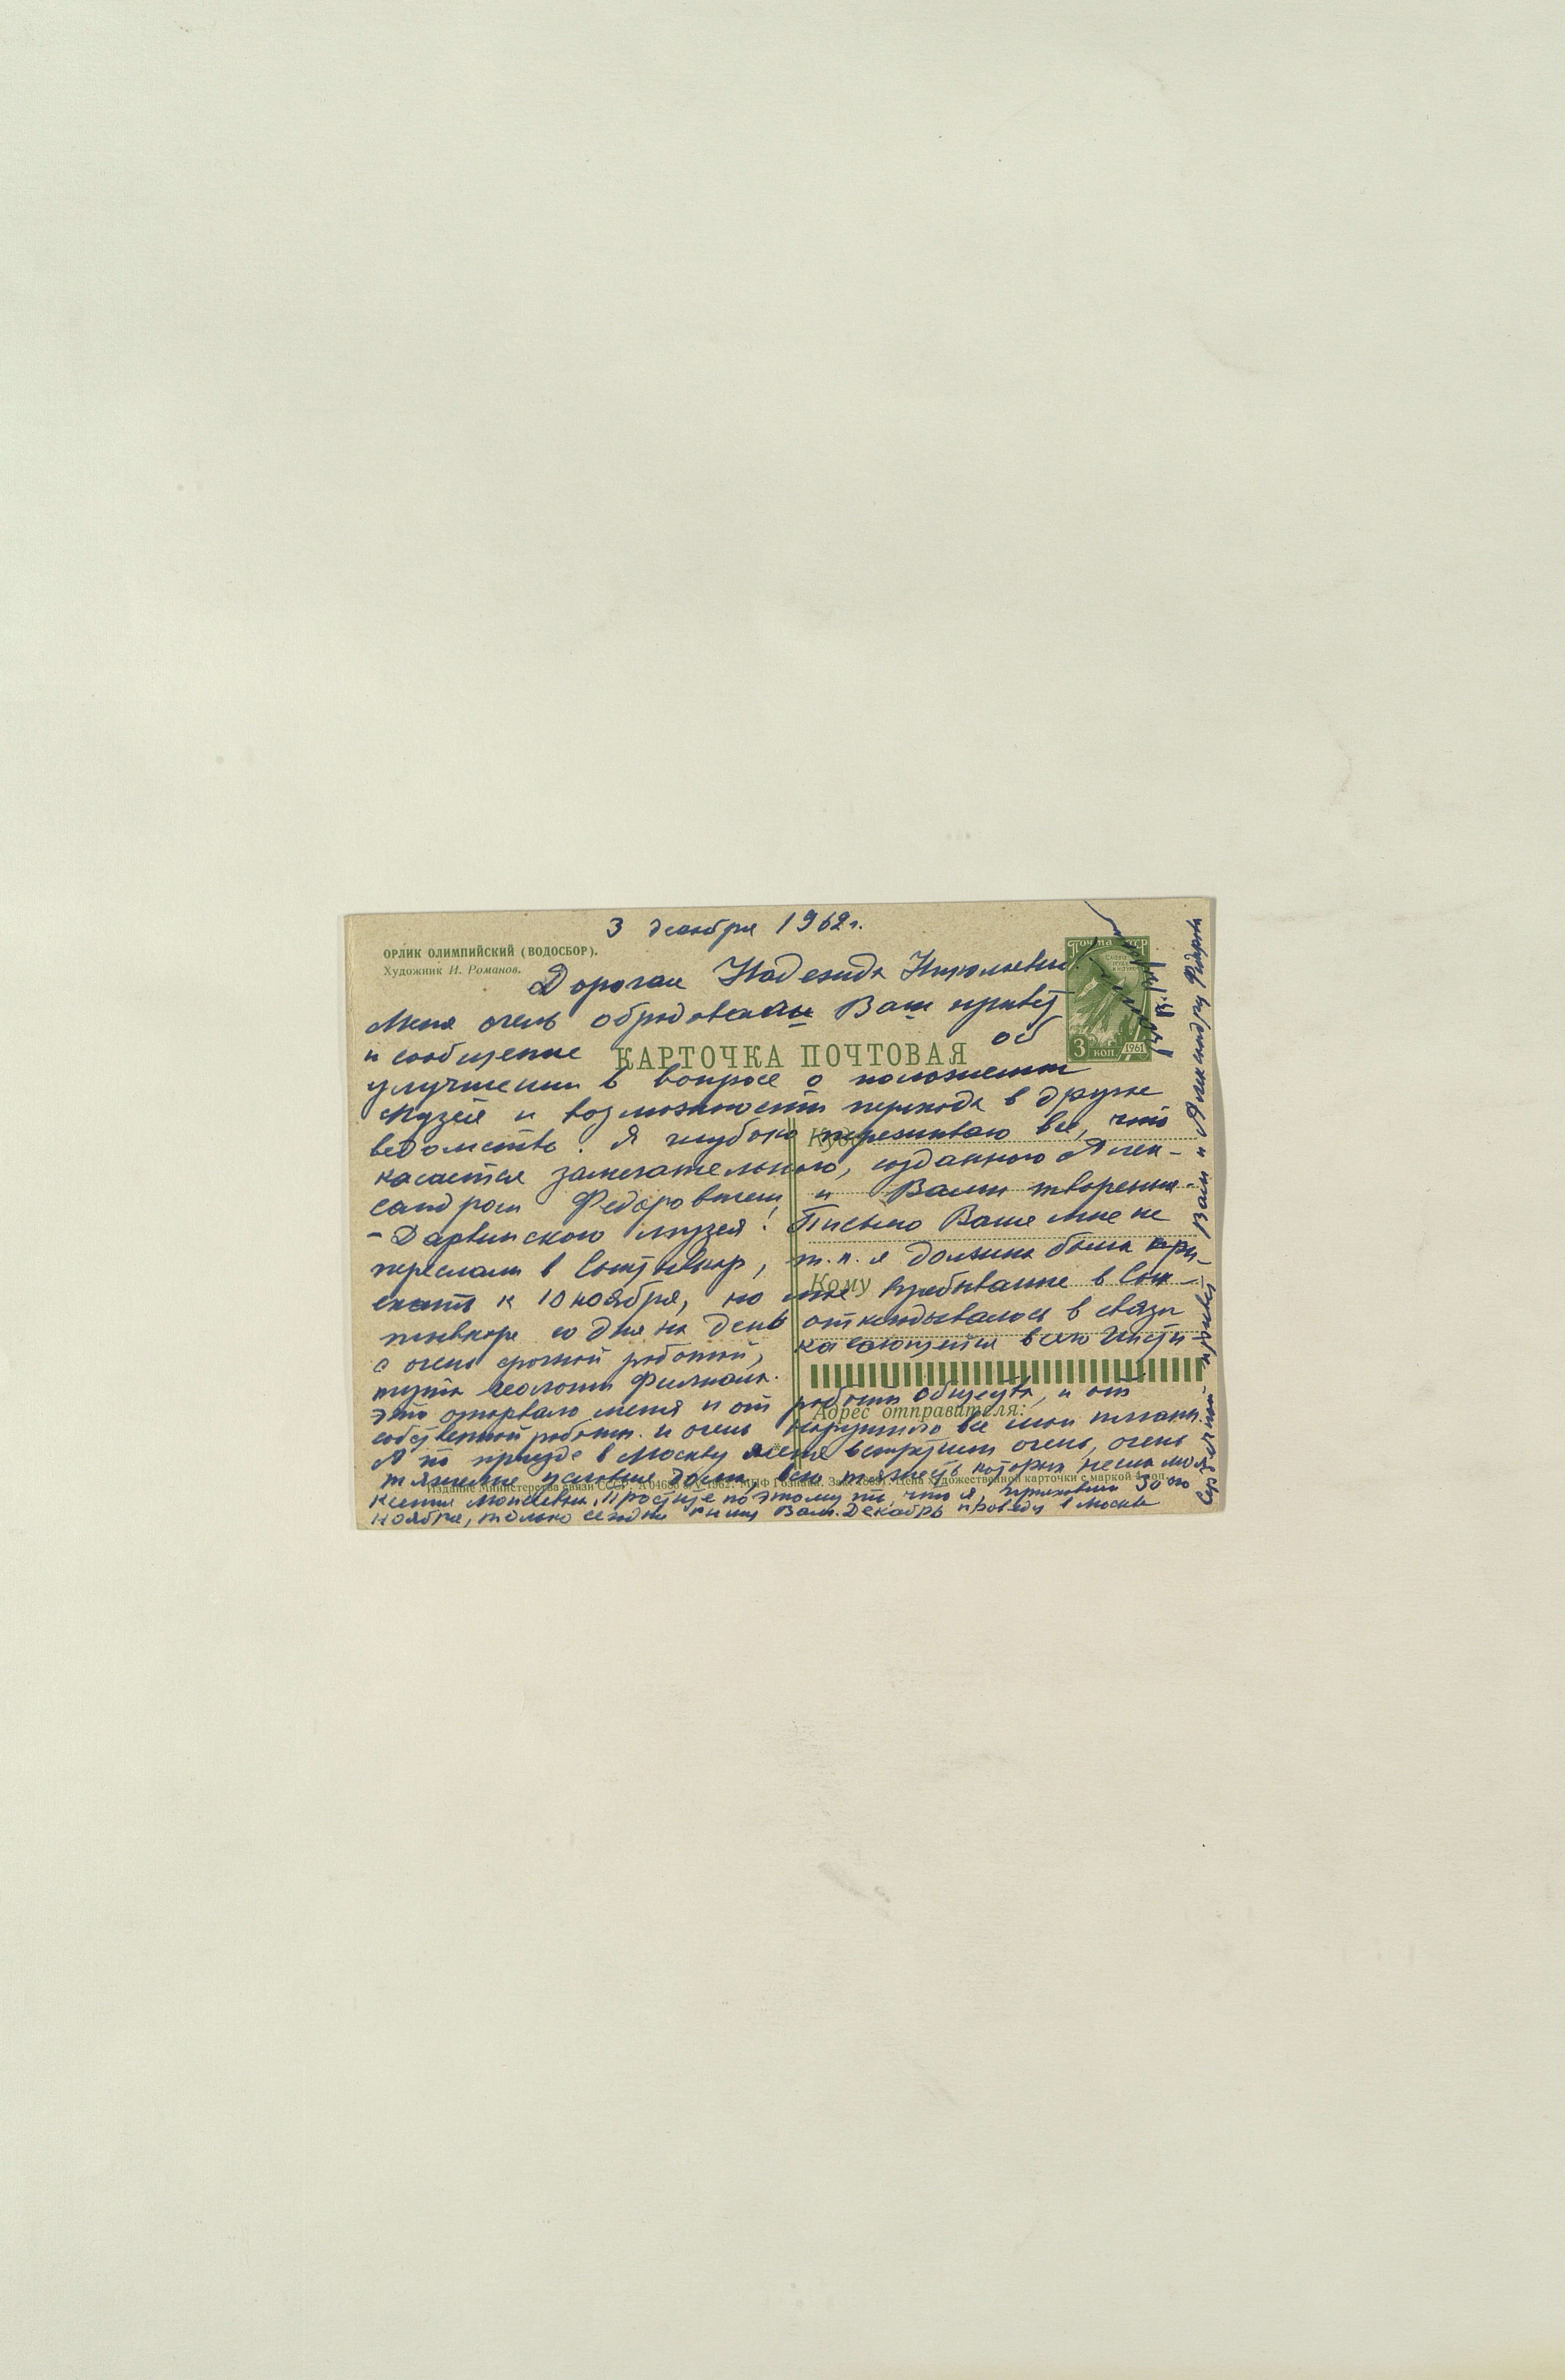 3 декабря 1962 г.
ОРЛИК ОЛИМПИЙСКИЙ (ВОДОСБОР).
Художник И. Романов.
Дорогая Надежда Николаевна!
Меня очень обрадовали Ваш привет
и сообщение об
КАРТОЧКА ПОЧТОВАЯ
ПОЧТА СССР
3 КОП
1961
улучшении в вопросе о положении
Музея и возможности перехода в другое
ведомство. Я глубоко переживаю все, что
Куда
касается замечательного, созданного Алек-
сандром Федоровичем и Вами творения-
- Дарвинского музея! Письмо Ваше мне не
переслали в Сыктывкар, т.к. я должна была при-
Кому
ехать к 10 ноября, но мое пребывание в Сык-
тывкаре со дня на день откладывалось в связи
с очень срочной работой, касающейся всего Инсти-
тута геологии Филиала.
Это оторвало меня и от работы Общества, и от
Адрес отправителя:
собственной работы и очень нарушило все мои планы.
А по приезде в Москву меня встретили очень, очень
тяжелые условия дома, всю тяжесть которых несла моя
Издание Министерства связи СССР. МПФ Гознака. Цена художественной карточки с маркой 4 коп.
Ксения Моисеевна. Простите поэтому, что я, приехавши 30-го
ноября, только сегодня пишу Вам. Декабрь проведу в Москве
Сердечный привет Вам и Александру Федоровичу